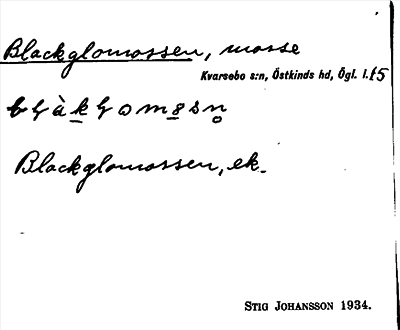 Blackglomossen, mosse
Kvarsebo s:n, Östkinds hd, Ögl. l. 15
Blackglomossen, ek.
STIG JOHANSSON 1934.